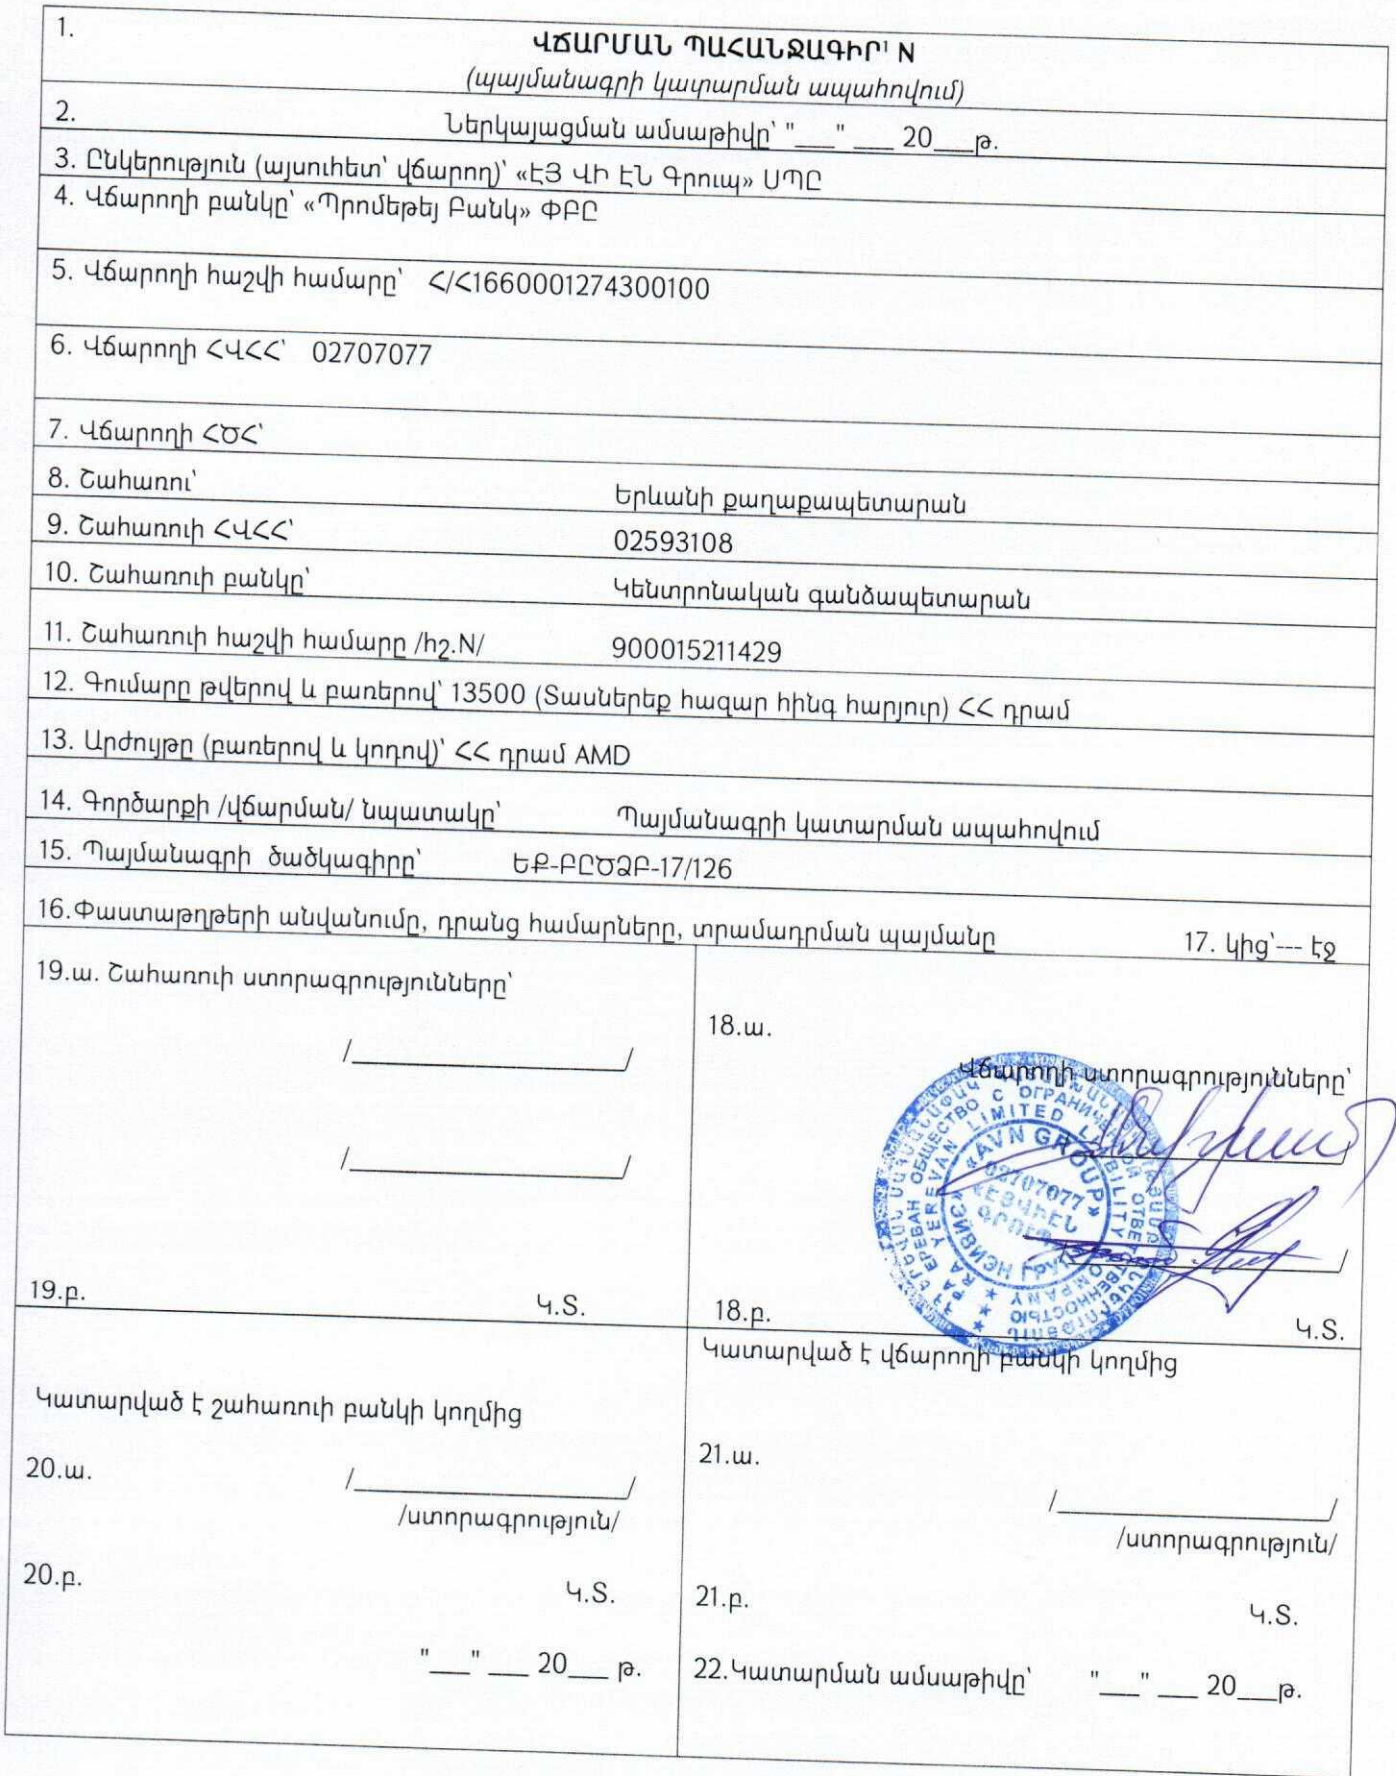 1.
ՎՃԱՐՄԱՆ ՊԱՀԱՆՋԱԳԻՐ¹ N
(պայմանագրի կատարման ապահովում)
2. Ներկայացման ամսաթիվը՝ "___" ___ 20___թ.
3. Ընկերություն (այսուհետ՝ վճարող)՝ «ԷՅ ՎԻ ԷՆ Գրուպ» ՍՊԸ
4. Վճարողի բանկը՝ «Պրոմեթեյ Բանկ» ՓԲԸ
5. Վճարողի հաշվի համարը՝ Հ/Հ1660001274300100
6. Վճարողի ՀՎՀՀ՝ 02707077
7. Վճարողի ՀԾՀ՝
8. Շահառու՝ Երևանի քաղաքապետարան
9. Շահառուի ՀՎՀՀ՝ 02593108
10. Շահառուի բանկը՝ Կենտրոնական գանձապետարան
11. Շահառուի հաշվի համարը /հշ.N/ 900015211429
12. Գումարը թվերով և բառերով՝ 13500 (Տասներեք հազար հինգ հարյուր) ՀՀ դրամ
13. Արժույթը (բառերով և կոդով)՝ ՀՀ դրամ AMD
14. Գործարքի /վճարման/ նպատակը՝ Պայմանագրի կատարման ապահովում
15. Պայմանագրի ծածկագիրը՝ ԵՔ-ԲԸԾՁԲ-17/126
16.Փաստաթղթերի անվանումը, դրանց համարները, տրամադրման պայմանը 17. կից՝--- էջ
19.ա. Շահառուի ստորագրությունները՝
/____________________/
/____________________/
19.բ. Կ.Տ.
18.ա.
Վճարողի ստորագրությունները՝
«AVN GROUP»
02707077
«ԷՅՎԻԷՆ
ԳՐՈՒՊ»
18.բ. Կ.Տ.
Կատարված է շահառուի բանկի կողմից
20.ա. /____________________/
/ստորագրություն/
20.բ. Կ.Տ.
"___" ___ 20___ թ.
Կատարված է վճարողի բանկի կողմից
21.ա.
/____________________/
/ստորագրություն/
21.բ. Կ.Տ.
22.Կատարման ամսաթիվը՝ "___" ___ 20___թ.